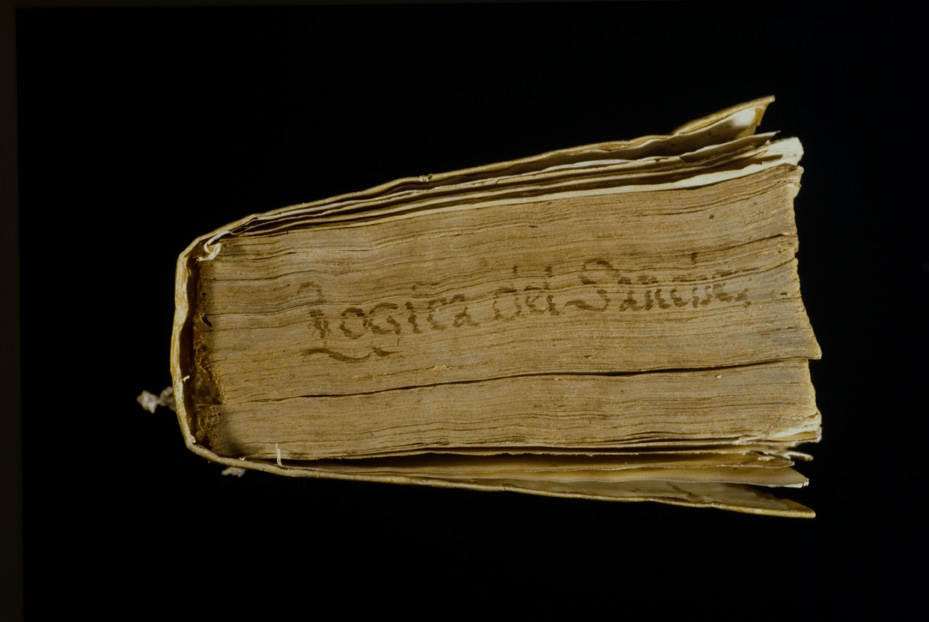 Logica del Sanchez